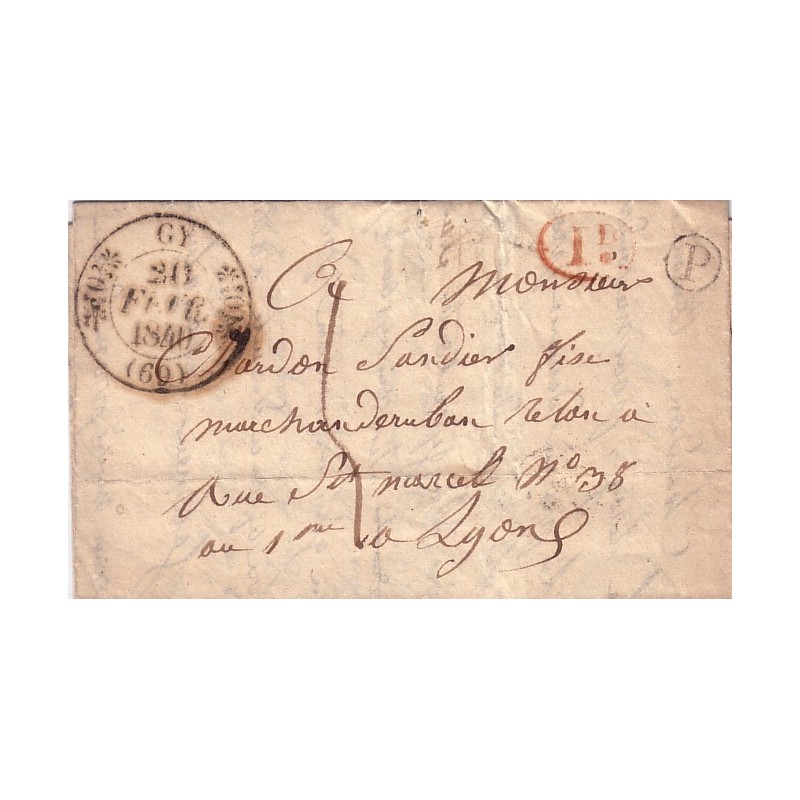 GY
20
FEVR.
1840
(69)
1D
P
A Monsieur
Bardon Sandier fise
marchanderuban velan à
Rue St marcel N° 38
au 1me a Lyon